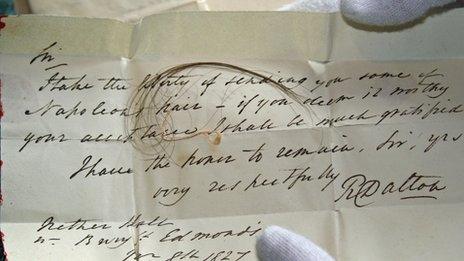 Sir
I take the liberty of sending you some of
Napoleons hair - if you deem it worthy
your acceptance I shall be much gratified
I have the honor to remain, Sir, yrs
very respectfully
RDalton
Nether Hall
nr Bury St Edmonds
8th 1827